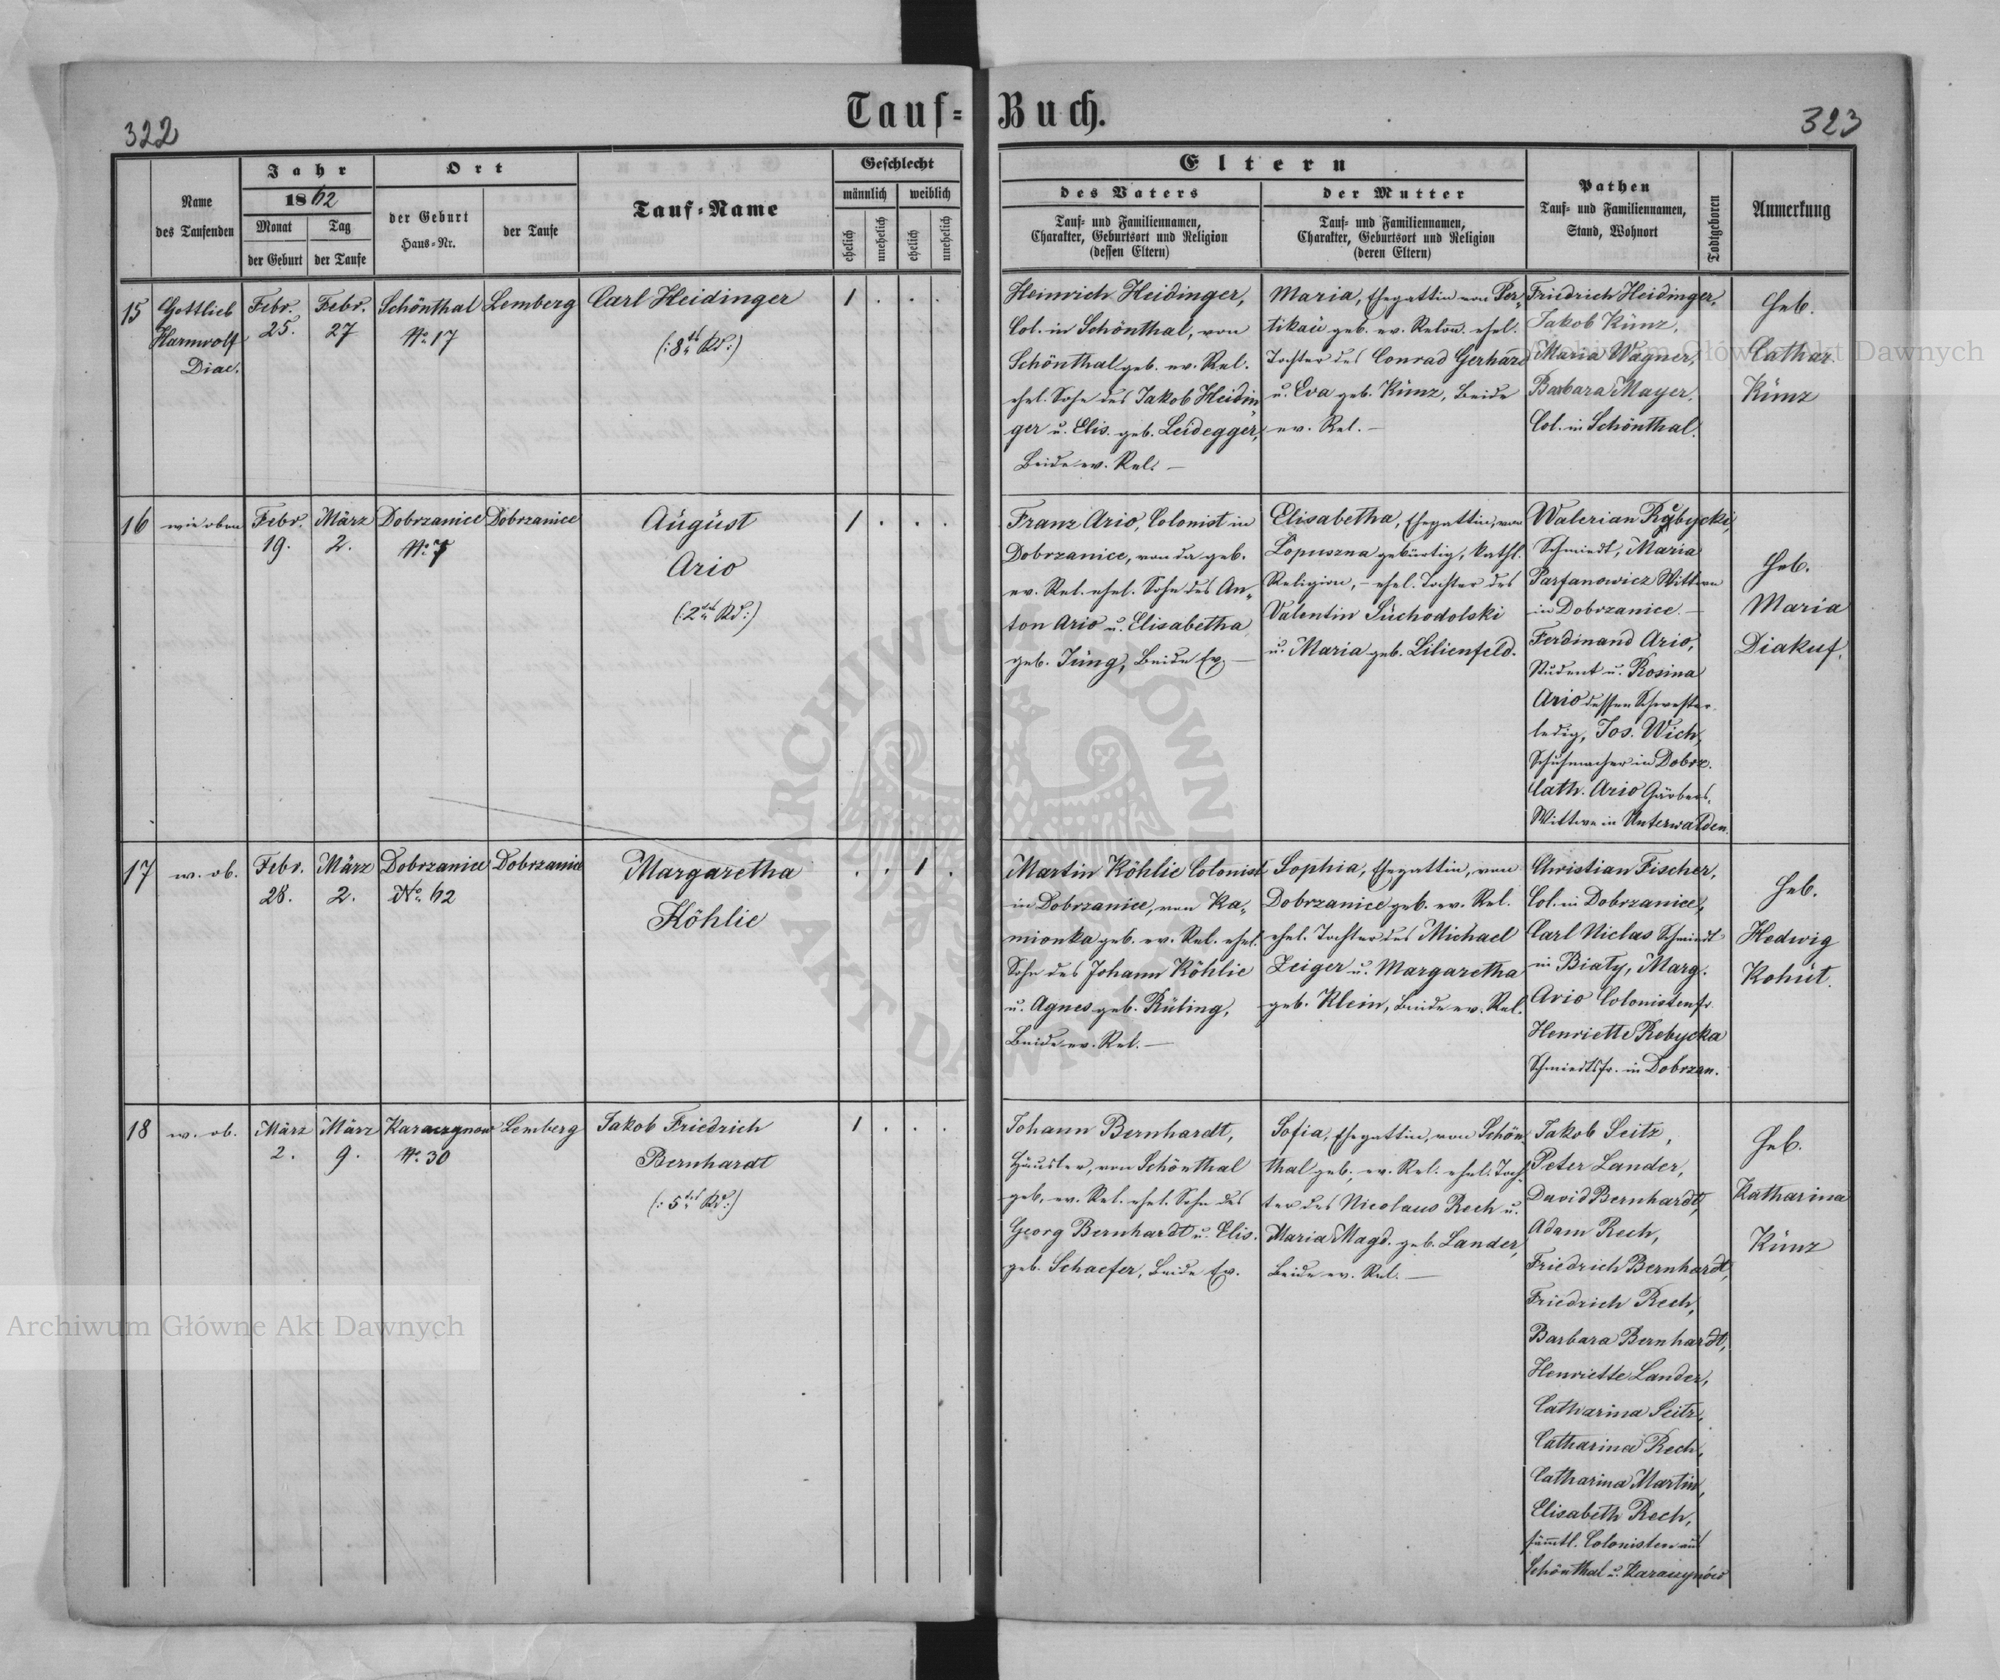 322
Tauf=Buch.
323
Name
des Taufenden
Jahr
1862
Monat
der Geburt
Tag
der Taufe
Ort
der Geburt
Haus=Nr.
der Taufe
Tauf=Name
Geschlecht
männlich
weiblich
ehelich
unehelich
ehelich
unehelich
Eltern
des Vaters
Tauf= und Familiennamen,
Charakter, Geburtsort und Religion
(dessen Eltern)
der Mutter
Tauf= und Familiennamen,
Charakter, Geburtsort und Religion
(deren Eltern)
Pathen
Tauf= und Familiennamen,
Stand, Wohnort
Todtgeboren
Anmerkung
15
Gottlieb
Harnwolf
Diac.
Febr.
25.
Febr.
27
Schönthal
No. 17
Lemberg
Carl Heidinger
(:8tes Kd:)
1 . . .
Heinrich Heidinger,
Col. in Schönthal, von
Schönthal geb. ev. Rel.
ehel. Sohn des Jakob Heidin
ger u. Elis. geb. Leidegger,
Beide ev. Rel. —
Maria, Ehegattin von Per-
tikau geb. ev. Relon. ehel.
Tochter des Conrad Gerhard
u. Eva geb. Künz, Beide
ev. Rel. —
Friedrich Heidinger,
Jakob Künz,
Maria Wagner,
Barbara Mayer,
Col. in Schönthal.
Heb.
Cathar.
Künz
16
wie oben
Febr.
19.
März
2.
Dobrzanice
No. 7
Dobrzanice
August
Ario
(:2tes Kd:)
1 . . .
Franz Ario, Colonist in
Dobrzanice, von da geb.
ev. Rel. ehel. Sohn des An-
ton Ario u. Elisabetha
geb. Jüng, Beide Ev. —
Elisabetha, Ehegattin, von
Lopuszna gebürtig, kathl.
Religion, – ehel. Tochter des
Valentin Suchodolski
u. Maria geb. Lilienfeld.
Walerian Rybycki,
Schmiedt, Maria
Parfanowicz Wittwe
in Dobrzanice. —
Ferdinand Ario,
Student u. Rosina
Ario dessen Schwester
ledig, Jos. Wich,
Schuhmacher in Dobrz.
Cath. Ario Gärbers,
Wittwe in Unterwalden.
Heb.
Maria
Diakuf.
17
w. ob.
Febr.
28.
März
2.
Dobrzanice
No. 62
Dobrzanice
Margaretha
Köhlie
. . 1 .
Martin Köhlie Colonist
in Dobrzanice, von Ka-
mionka geb. ev. Rel. ehel.
Sohn des Johann Köhlie
u. Agnes geb. Rüling,
Beide ev. Rel. —
Sophia, Ehegattin, von
Dobrzanice geb. ev. Rel.
ehel. Tochter des Michael
Zeiger u. Margaretha
geb. Klein, Beide ev. Rel.
Christian Fischer,
Col. in Dobrzanice,
Carl Niclas Schmiedt
in Biaty, Marg.
Ario Colonistenfr.
Henriette Rebycka
Schmiedtsfr. in Dobrzan.
Heb.
Hedwig
Kohut.
18
w. ob.
März
2.
März
9.
Karaczynow
No. 30
Lemberg
Jakob Friedrich
Bernhardt
(:5tes Kd:)
1 . . .
Johann Bernhardt,
Häusler, von Schönthal
geb. ev. Rel. ehel. Sohn des
Georg Bernhardt u. Elis.
geb. Schaefer, Beide Ev.
Sofia, Ehegattin, von Schön-
thal geb. ev. Rel. ehel. Toch-
ter des Nicolaus Rech u.
Maria Magd. geb. Lander,
Beide ev. Rel. —
Jakob Seitz,
Peter Lander,
David Bernhardt,
Adam Rech,
Friedrich Bernhardt,
Friedrich Rech,
Barbara Bernhardt,
Henriette Lander,
Catharina Seitz,
Catharina Rech,
Catharina Martin,
Elisabeth Rech,
sämmtl. Colonisten aus
Schönthal u. Karaczynów
Heb.
Katharina
Künz
Archiwum Główne Akt Dawnych
Archiwum Główne Akt Dawnych
ARCHIWUM GŁÓWNE AKT DAWNYCH